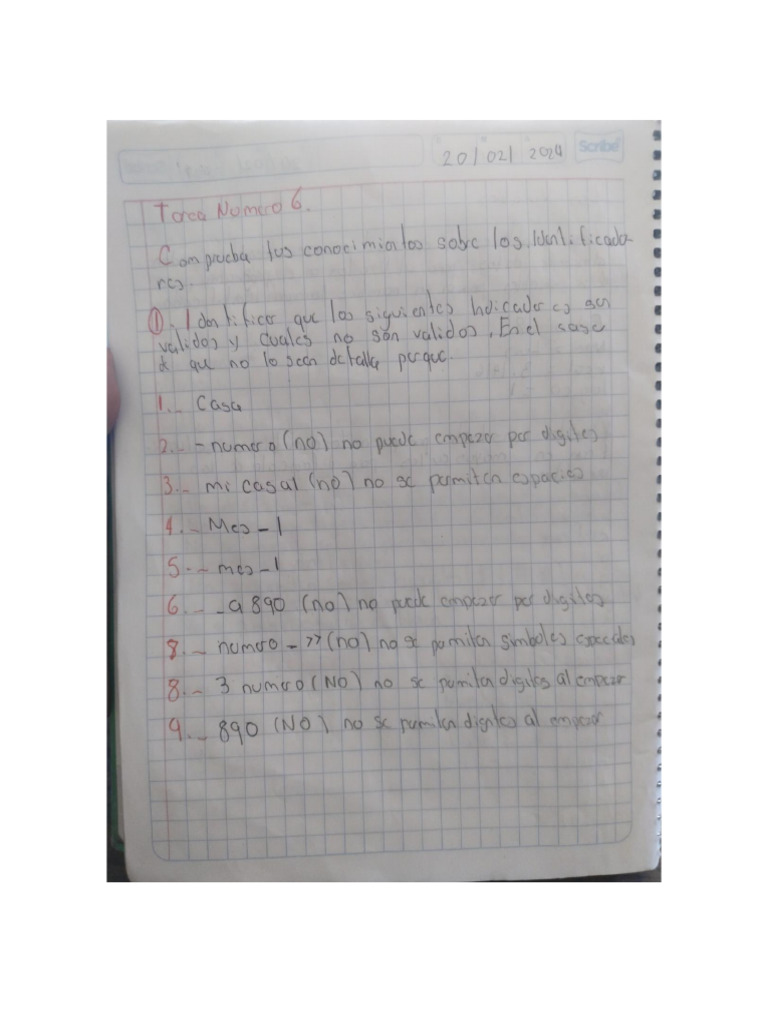 20/02/2024 Scribe
Tarea Numero 6.
Comprueba tus conocimientos sobre los Identificado-
res.
①. Identificar que los siguientes Indicadores son
validos y cuales no son validos. En el caso
de que no lo sean detalla porque.
1.- Casa
2.- -numero (no) no puede empezar por digitos
3.- mi casa1 (no) no se permiten espacios
4.- Mes-1
5.- mes-1
6.- -a890 (no) no puede empezar por digitos
8.- numero->> (no) no se permiten simbolos especiales
8.- 3 numero (NO) no se permiten digitos al empezar
9.- 890 (NO) no se permiten digitos al empezar